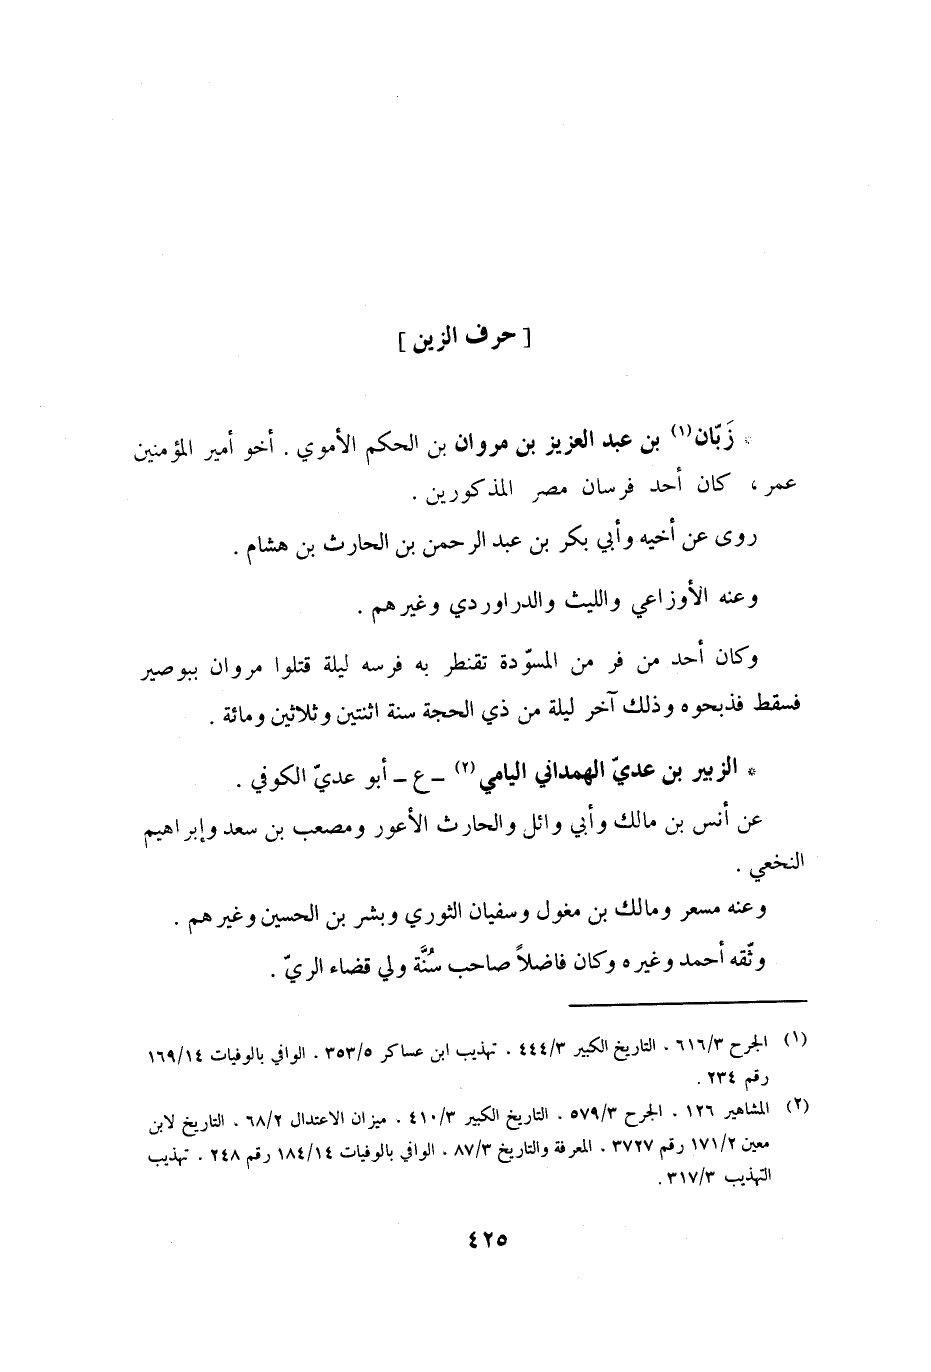 [ حرف الزين ]
* زَبّان(١) بن عبد العزيز بن مروان بن الحكم الأموي . أخو أمير المؤمنين
عمر ، كان أحد فرسان مصر المذكورين .
روى عن أخيه وأبي بكر بن عبد الرحمن بن الحارث بن هشام .
وعنه الأوزاعي والليث والدراوردي وغيرهم .
وكان أحد من فر من المسوّدة تقنطر به فرسه ليلة قتلوا مروان ببوصير
فسقط فذبحوه وذلك آخر ليلة من ذي الحجة سنة اثنتين وثلاثين ومائة .
* الزبير بن عديّ الهمداني اليامي(٢) ـ ع ـ أبو عديّ الكوفي .
عن أنس بن مالك وأبي وائل والحارث الأعور ومصعب بن سعد وإبراهيم
النخعي .
وعنه مسعر ومالك بن مغول وسفيان الثوري وبشر بن الحسين وغيرهم .
وثّقه أحمد وغيره وكان فاضلاً صاحب سُنَّة ولي قضاء الريّ .
(١) الجرح ٦١٦/٣ . التاريخ الكبير ٤٤٤/٣ . تهذيب ابن عساكر ٣٥٣/٥ . الوافي بالوفيات ١٦٩/١٤
رقم ٢٣٤ .
(٢) المشاهير ١٢٦ . الجرح ٥٧٩/٣ . التاريخ الكبير ٤١٠/٣ . ميزان الاعتدال ٦٨/٢ . التاريخ لابن
معين ١٧١/٢ رقم ٣٧٢٧ . المعرفة والتاريخ ٨٧/٣ . الوافي بالوفيات ١٨٤/١٤ رقم ٢٤٨ . تهذيب
التهذيب ٣١٧/٣ .
٤٢٥